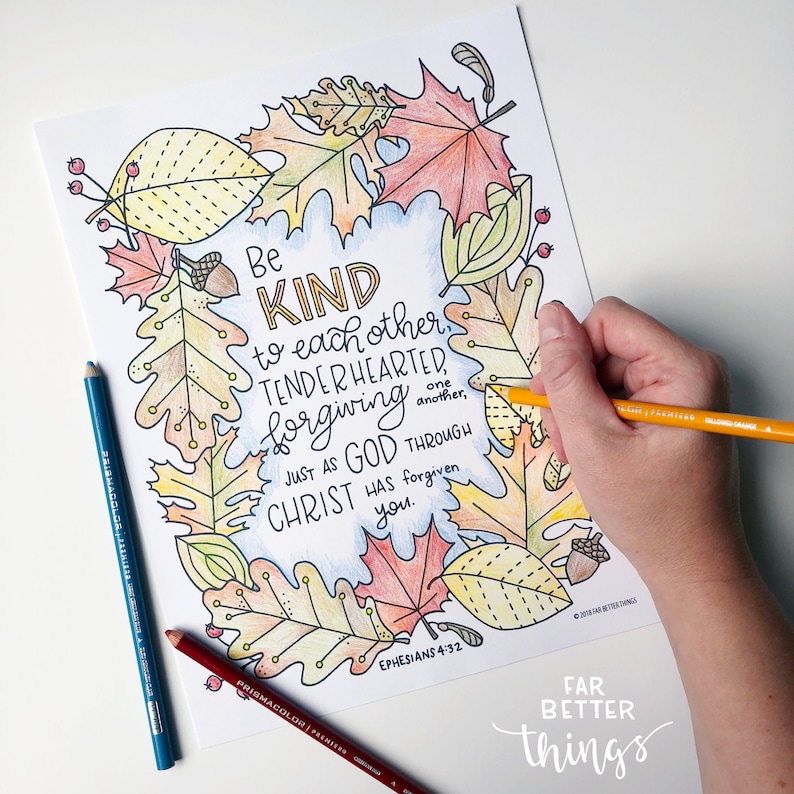 Be
KIND
to each other,
TENDERHEARTED,
forgiving one another,
JUST AS GOD THROUGH
CHRIST HAS forgiven
you.
EPHESIANS 4:32
© 2018 FAR BETTER THINGS
PRISMACOLOR PREMIER
PRISMACOLOR PREMIER
PREMIER YELLOWED ORANGE
FAR
BETTER
things